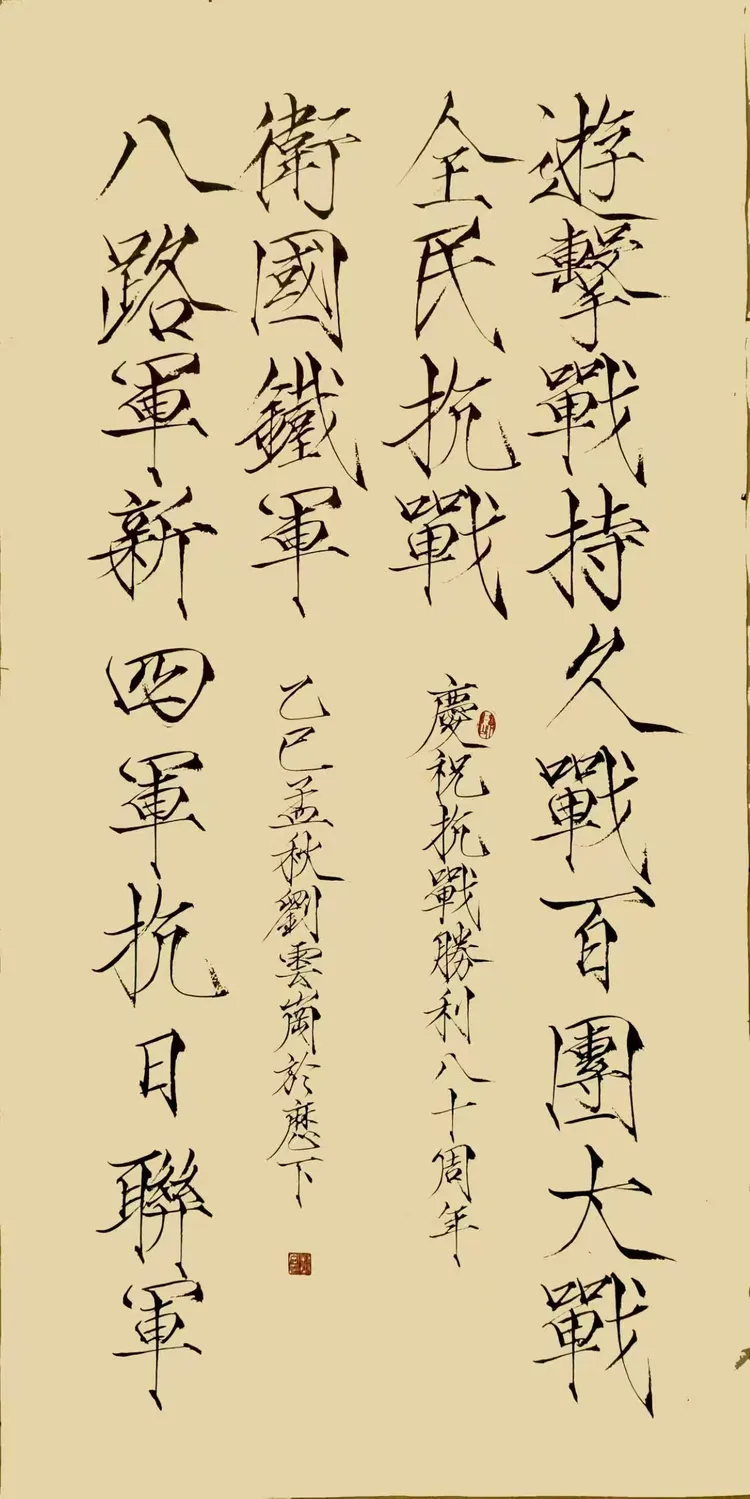 遊擊戰持久戰百團大戰
全民抗戰
慶祝抗戰勝利八十周年
八路軍新四軍抗日聯軍
衛國鐵軍
乙巳孟秋劉雲崗於歷下